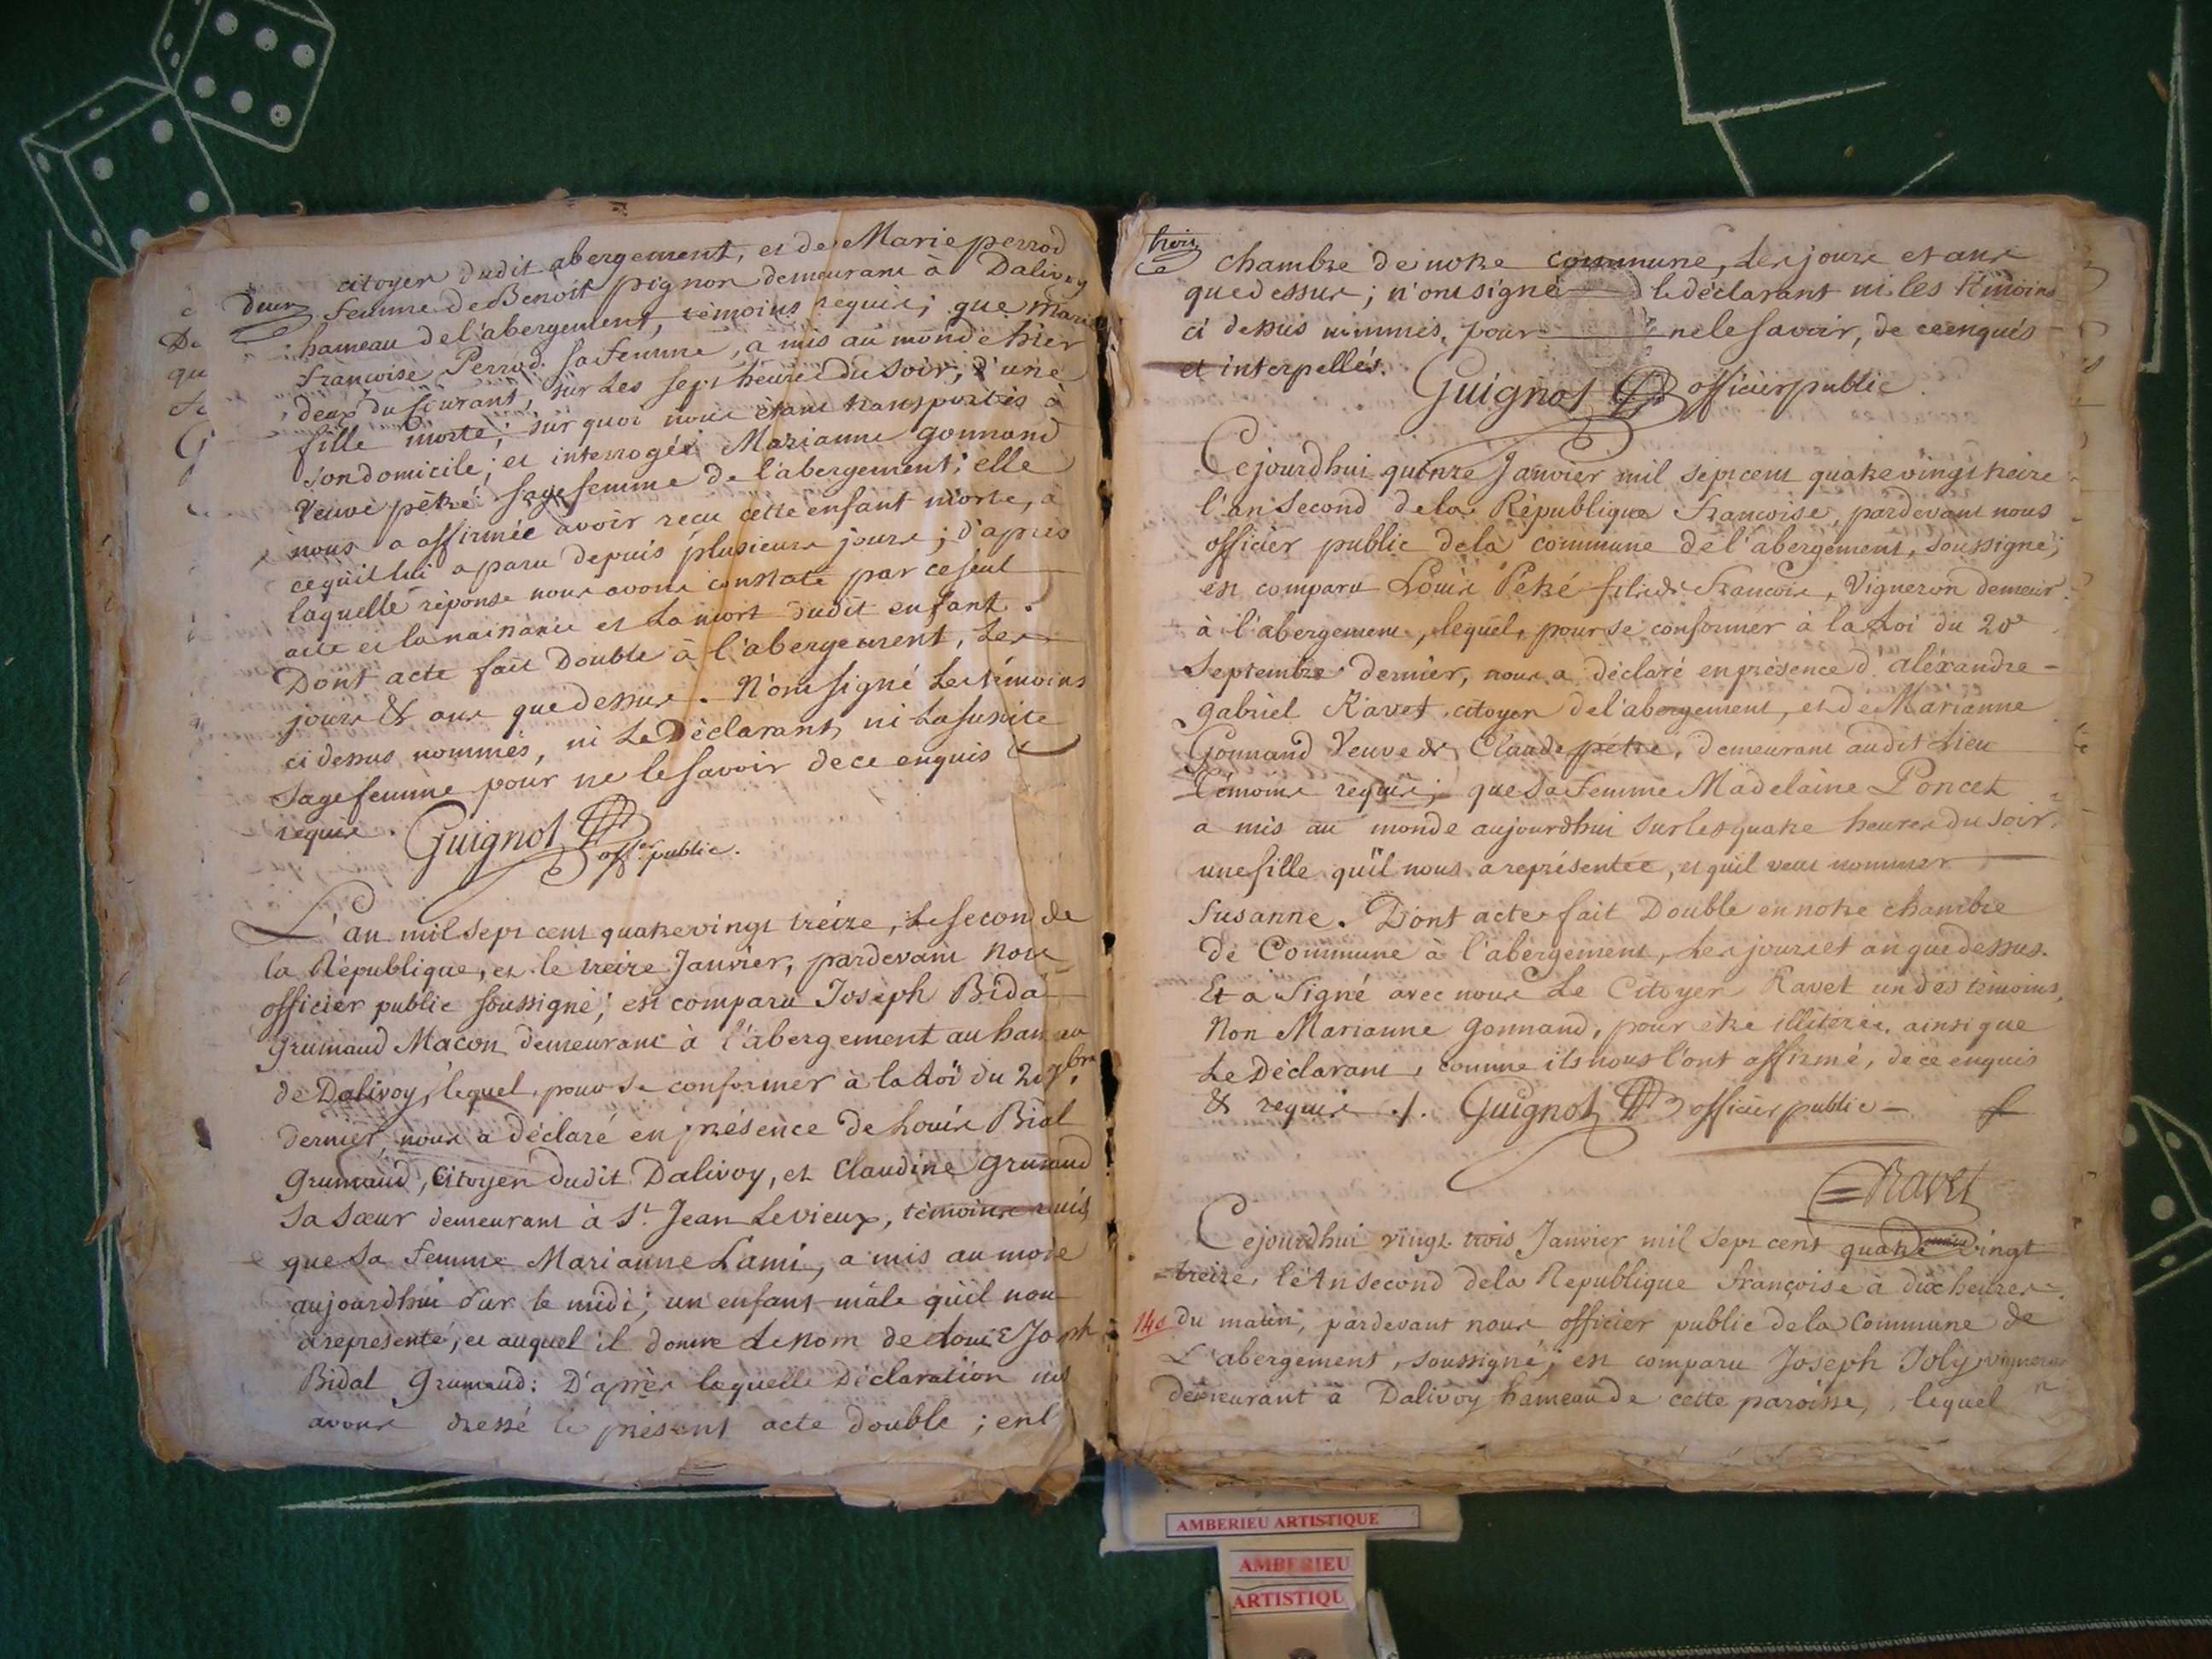 deux
citoyen dudit abergement, et de Marie perrod
femme de Benoit pignon demeurant à Dalivoy
hameau de l'abergement, témoins requis; que Marie
françoise Perrod sa femme, a mis au monde hier
deux du courant, sur les sept heures du soir, d'une
fille morte; sur quoi nous étant transportés à
son domicile, et interrogée Marianne gonnand
Veuve pétré sage femme de l'abergement; elle
nous a affirmée avoir recu cette enfant morte, à
cequil lui a paru depuis plusieurs jours; d'après
laquelle réponse nous avons constaté par ce seul
acte et la naissance et la mort dudit enfant.
Dont acte fait Double à l'abergement, les
jours & ans que dessus. N'ont signé les témoins
ci dessus nommés, ni le Déclarant, ni la susdite
sage femme pour ne le savoir de ce enquis &
requis. Guignot offer public.
L'an mil sept cent quatre vingt treize, le second de
la République, et le treize Janvier, pardevant nous
officier public soussigné; est comparu Joseph Bidal
grumaud Macon demeurant à l'abergement au hameau
de Dalivoy, lequel, pour se conformer à la Loi du 20 7bre
dernier, nous a déclaré en présence de Louis Bidal
grumaud, citoyen dudit Dalivoy, et Claudine grumaud
sa sœur demeurant à St. Jean Levieux, témoins requis,
que sa femme Marianne Lami, a mis au monde
aujourdhui sur le midi; un enfant mâle qu'il nous
a représenté, et auquel il donne le nom de Louis Joseph
Bidal grumaud: D'après laquelle Déclaration nous
avons dressé le présent acte double; en la
trois
chambre de notre commune, les jours et ans
que dessus; n'ont signé le déclarant ni les témoins
ci dessus nommés, pour ne le savoir, de ce enquis
et interpellés.
Guignot officier public.
Cejourdhui quinze Janvier mil sept cent quatre vingt treize
l'an second de la République françoise, pardevant nous
officier public de la commune de l'abergement, soussigné;
est comparu Louis Pétré fils de François, Vigneron demeur.
à l'abergement, lequel, pour se conformer à la Loi du 20e
septembre dernier, nous a déclaré en présence d'aléxandre-
gabriel Ravet citoyen de l'abergement, et de Marianne
Gonnand Veuve de Claude pétré, demeurant audit Lieu
témoins requis; que sa femme Madelaine Poncet
a mis au monde aujourdhui sur les quatre heures du soir,
une fille qu'il nous a représentée, et qu'il veut nommer
Susanne. Dont acte fait Double en notre chambre
de Commune à l'abergement, les jours et an que dessus.
Et a Signé avec nous Le Citoyen Ravet un des témoins,
Non Marianne gonnand, pour être illiterée, ainsi que
Le Déclarant, comme ils nous l'ont affirmé, de ce enquis
& requis ./. Guignot officier public
Ravet
Cejourdhui vingt trois Janvier mil sept cent quatre vingt
treize, l'An second de la Republique françoise à dix heures
140 du matin, pardevant nous officier public de la Commune de
L'abergement, soussigné, est comparu Joseph Joly vigneron
demeurant à Dalivoy hameau de cette paroisse, lequel
AMBERIEU ARTISTIQUE
AMBERIEU
ARTISTIQU